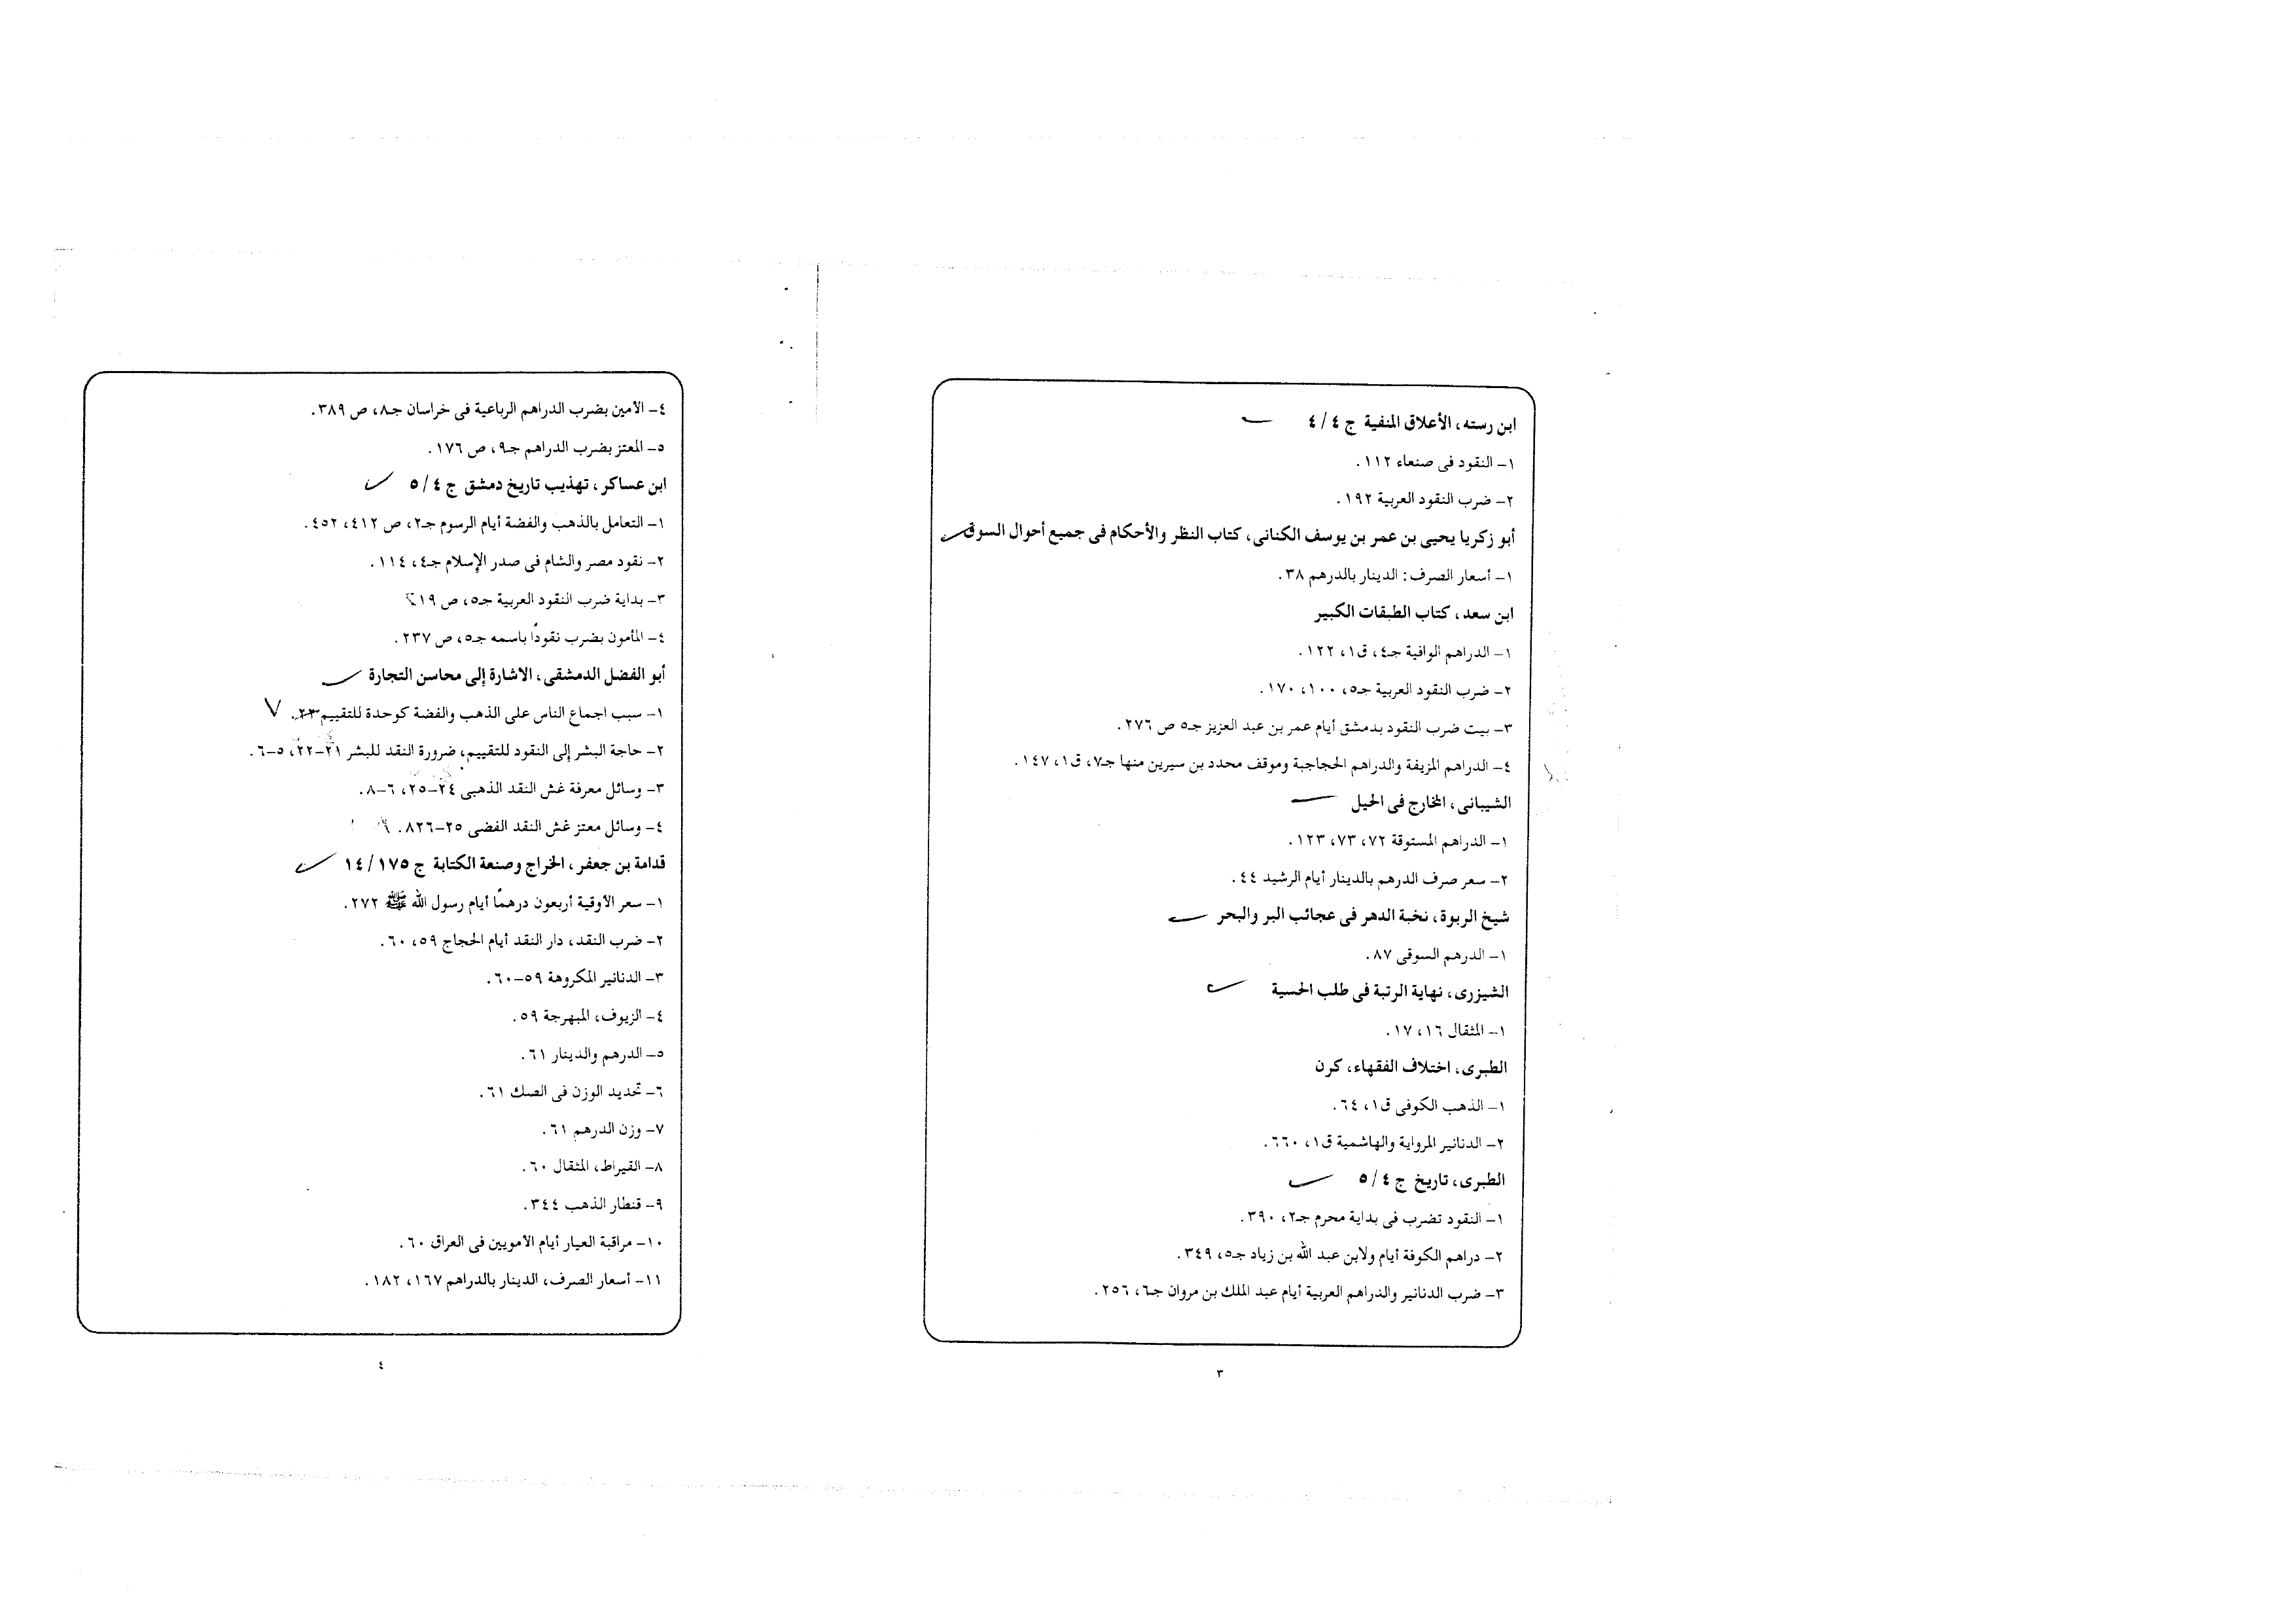 ابن رسته، الأعلاق المنفية ج ٤ / ٤
١- النقود فى صنعاء ١١٢.
٢- ضرب النقود العربية ١٩٢.
أبو زكريا يحيى بن عمر بن يوسف الكنانى، كتاب النظر والأحكام فى جميع أحوال السوق
١- أسعار الصرف: الدينار بالدرهم ٣٨.
ابن سعد، كتاب الطبقات الكبير
١- الدراهم الوافية جـ٤، ق١، ١٢٢.
٢- ضرب النقود العربية جـ٥، ١٠٠، ١٧٠.
٣- بيت ضرب النقود بدمشق أيام عمر بن عبد العزيز جـ٥ ص ٢٧٦.
٤- الدراهم المزيفة والدراهم الحجاجبة وموقف محدد بن سيرين منها جـ٧، ق١، ١٤٧.
الشيبانى، المخارج فى الحيل
١- الدراهم المستوقة ٧٢، ٧٣، ١٢٣.
٢- سعر صرف الدرهم بالدينار أيام الرشيد ٤٤.
شيخ الربوة، نخبة الدهر فى عجائب البر والبحر
١- الدرهم السوقى ٨٧.
الشيزرى، نهاية الرتبة فى طلب الحسية
١- المثقال ١٦، ١٧.
الطبرى، اختلاف الفقهاء، كرن
١- الذهب الكوفى ق١، ٦٤.
٢- الدنانير المرواية والهاشمية ق١، ٦٦٠.
الطبرى، تاريخ ج ٤ / ٥
١- النقود تضرب فى بداية محرم جـ٢، ٣٩٠.
٢- دراهم الكوفة أيام ولابن عبد الله بن زياد جـ٥، ٣٤٩.
٣- ضرب الدنانير والدراهم العربية أيام عبد الملك بن مروان جـ٦، ٢٥٦.
٣
٤- الأمين بضرب الدراهم الرباعية فى خراسان جـ٨، ص ٣٨٩.
٥- المعتز بضرب الدراهم جـ٩، ص ١٧٦.
ابن عساكر، تهذيب تاريخ دمشق ج ٤ / ٥
١- التعامل بالذهب والفضة أيام الرسوم جـ٢، ص ٤١٢، ٤٥٢.
٢- نقود مصر والشام فى صدر الإسلام جـ٤، ١١٤.
٣- بداية ضرب النقود العربية جـ٥، ص ١٩
٤- المأمون بضرب نقودًا باسمه جـ٥، ص ٢٣٧.
أبو الفضل الدمشقى، الاشارة إلى محاسن التجارة
١- سبب اجماع الناس على الذهب والفضة كوحدة للتقييم ٢٣.
٢- حاجة البشر إلى النقود للتقييم، ضرورة النقد للبشر ٢١-٢٢، ٥-٦.
٣- وسائل معرفة غش النقد الذهبى ٢٤-٢٥، ٦-٨.
٤- وسائل معتز غش النقد الفضى ٢٥-٨٢٦.
قدامة بن جعفر، الخراج وصنعة الكتابة ج ١٧٥ / ١٤
١- سعر الأوقية أربعون درهمًا أيام رسول الله ﷺ ٢٧٢.
٢- ضرب النقد، دار النقد أيام الحجاج ٥٩، ٦٠.
٣- الدنانير المكروهة ٥٩-٦٠.
٤- الزيوف، المبهرجة ٥٩.
٥- الدرهم والدينار ٦١.
٦- تحديد الوزن فى الصك ٦١.
٧- وزن الدرهم ٦١.
٨- القيراط، المثقال ٦٠.
٩- قنطار الذهب ٣٤٤.
١٠- مراقبة العيار أيام الأمويين فى العراق ٦٠.
١١- أسعار الصرف، الدينار بالدراهم ١٦٧، ١٨٢.
٤